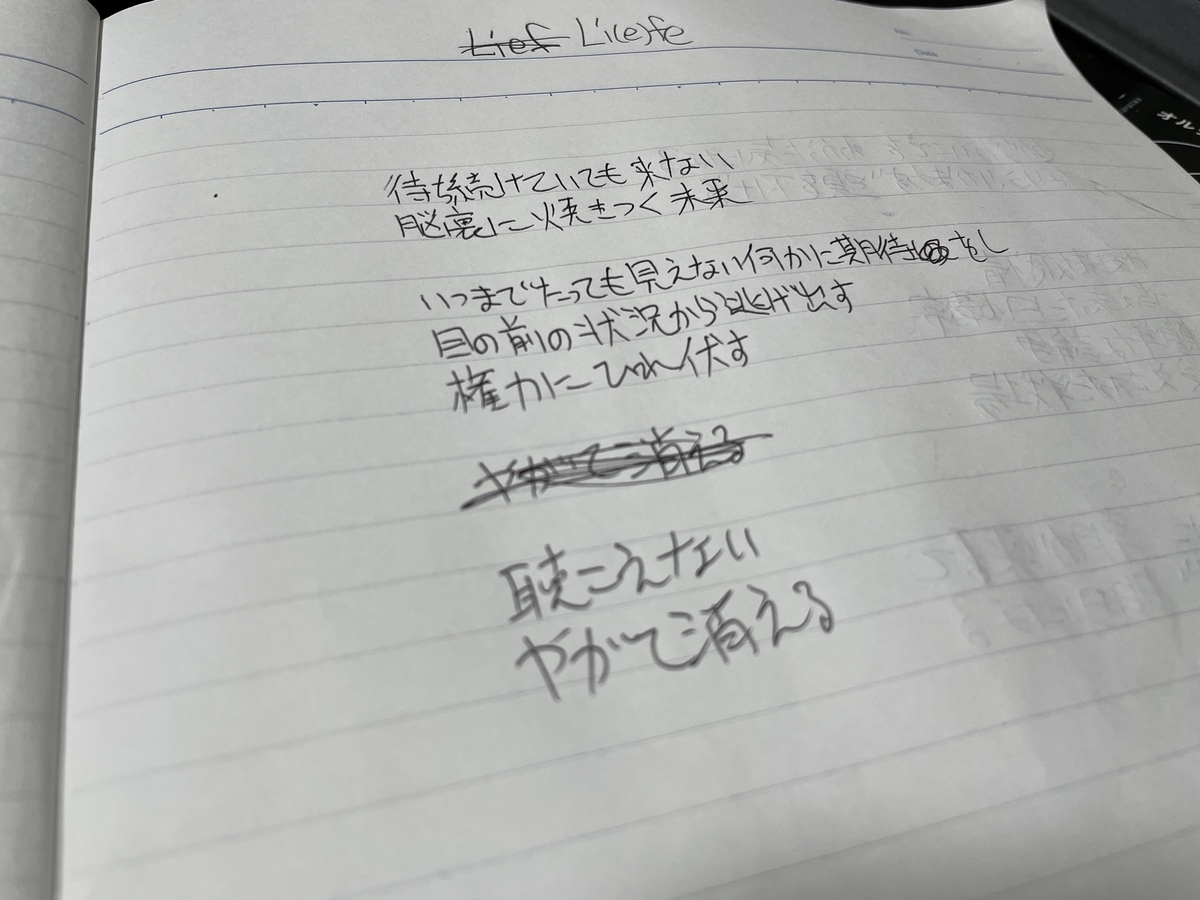 Lief Li(e)fe
No.
Date
待ち続けていても来ない
脳裏に焼きつく未来
いつまでたっても見えない何かに期待をし
目の前の状況から逃げ出す
権力にひれ伏す
やがて消える
聴こえない
やがて消える